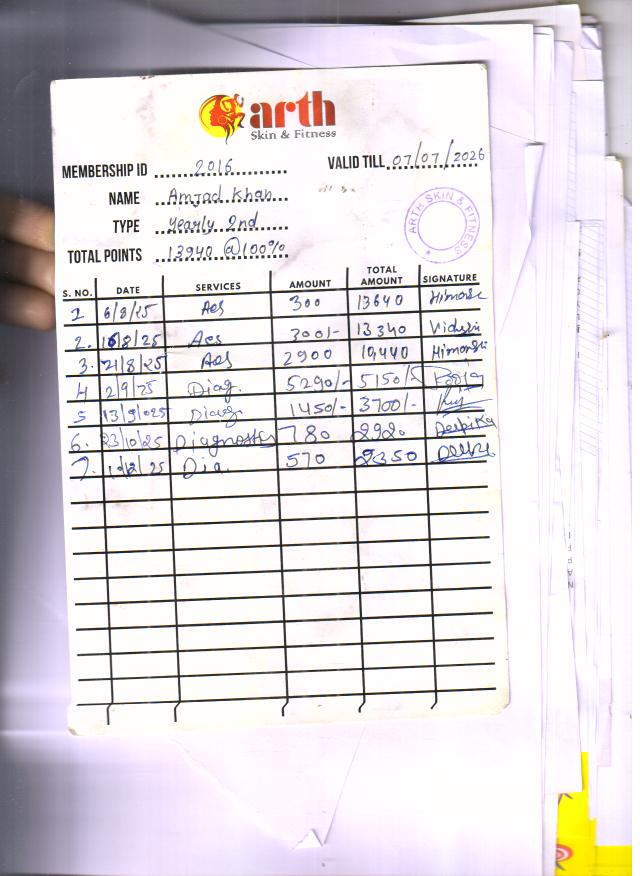 arth
Skin & Fitness
MEMBERSHIP ID 2016 VALID TILL 07/07/2026
NAME Amjad Khan
TYPE Yearly 2nd
TOTAL POINTS 13940 @100%
ARTH SKIN & FITNESS
S. NO. DATE SERVICES AMOUNT TOTAL AMOUNT SIGNATURE
1 6/8/25 Aes 300 13640
2. 16/8/25 Aes 300/- 13340
3. 21/8/25 Aes 2900 10,440
4 2/9/25 Diag. 5290/- 5150/-
5 13/9/025 Diag. 1450/- 3700/-
6. 23/10/25 Diagnostics 780 2920 Deepika
7. /25 Dia. 570 2350